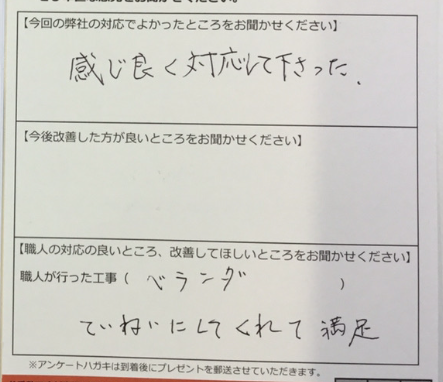 【今回の弊社の対応でよかったところをお聞かせください】
感じ良く対応して下さった.
【今後改善した方が良いところをお聞かせください】
【職人の対応の良いところ、改善してほしいところをお聞かせください】
職人が行った工事（ ベランダ ）
ていねいにしてくれて満足
※アンケートハガキは到着後にプレゼントを郵送させていただきます。